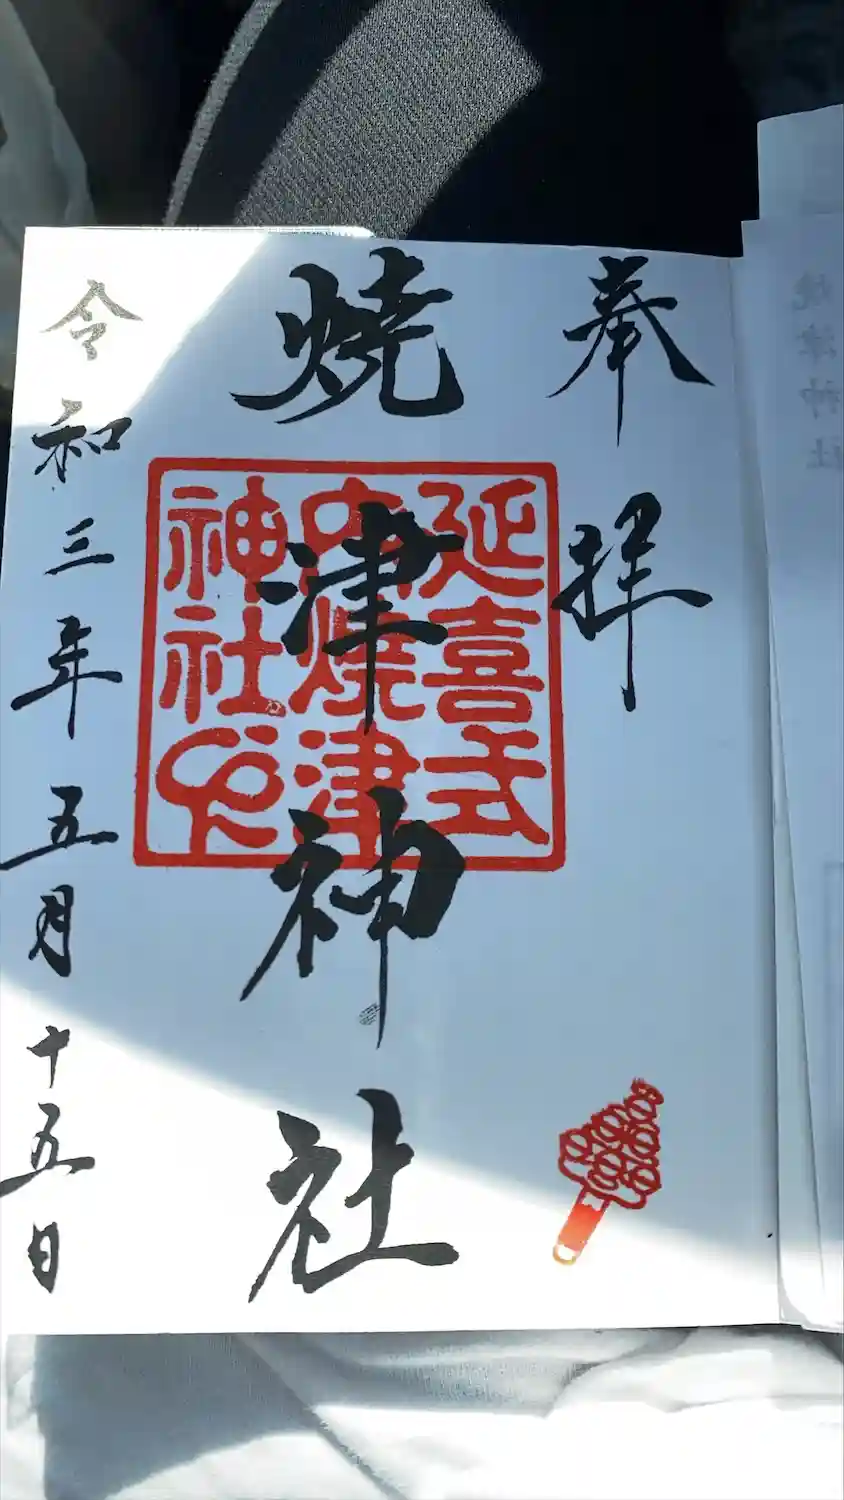 奉拝
焼津神社
延喜式
内焼津
神社印
令和三年五月十五日